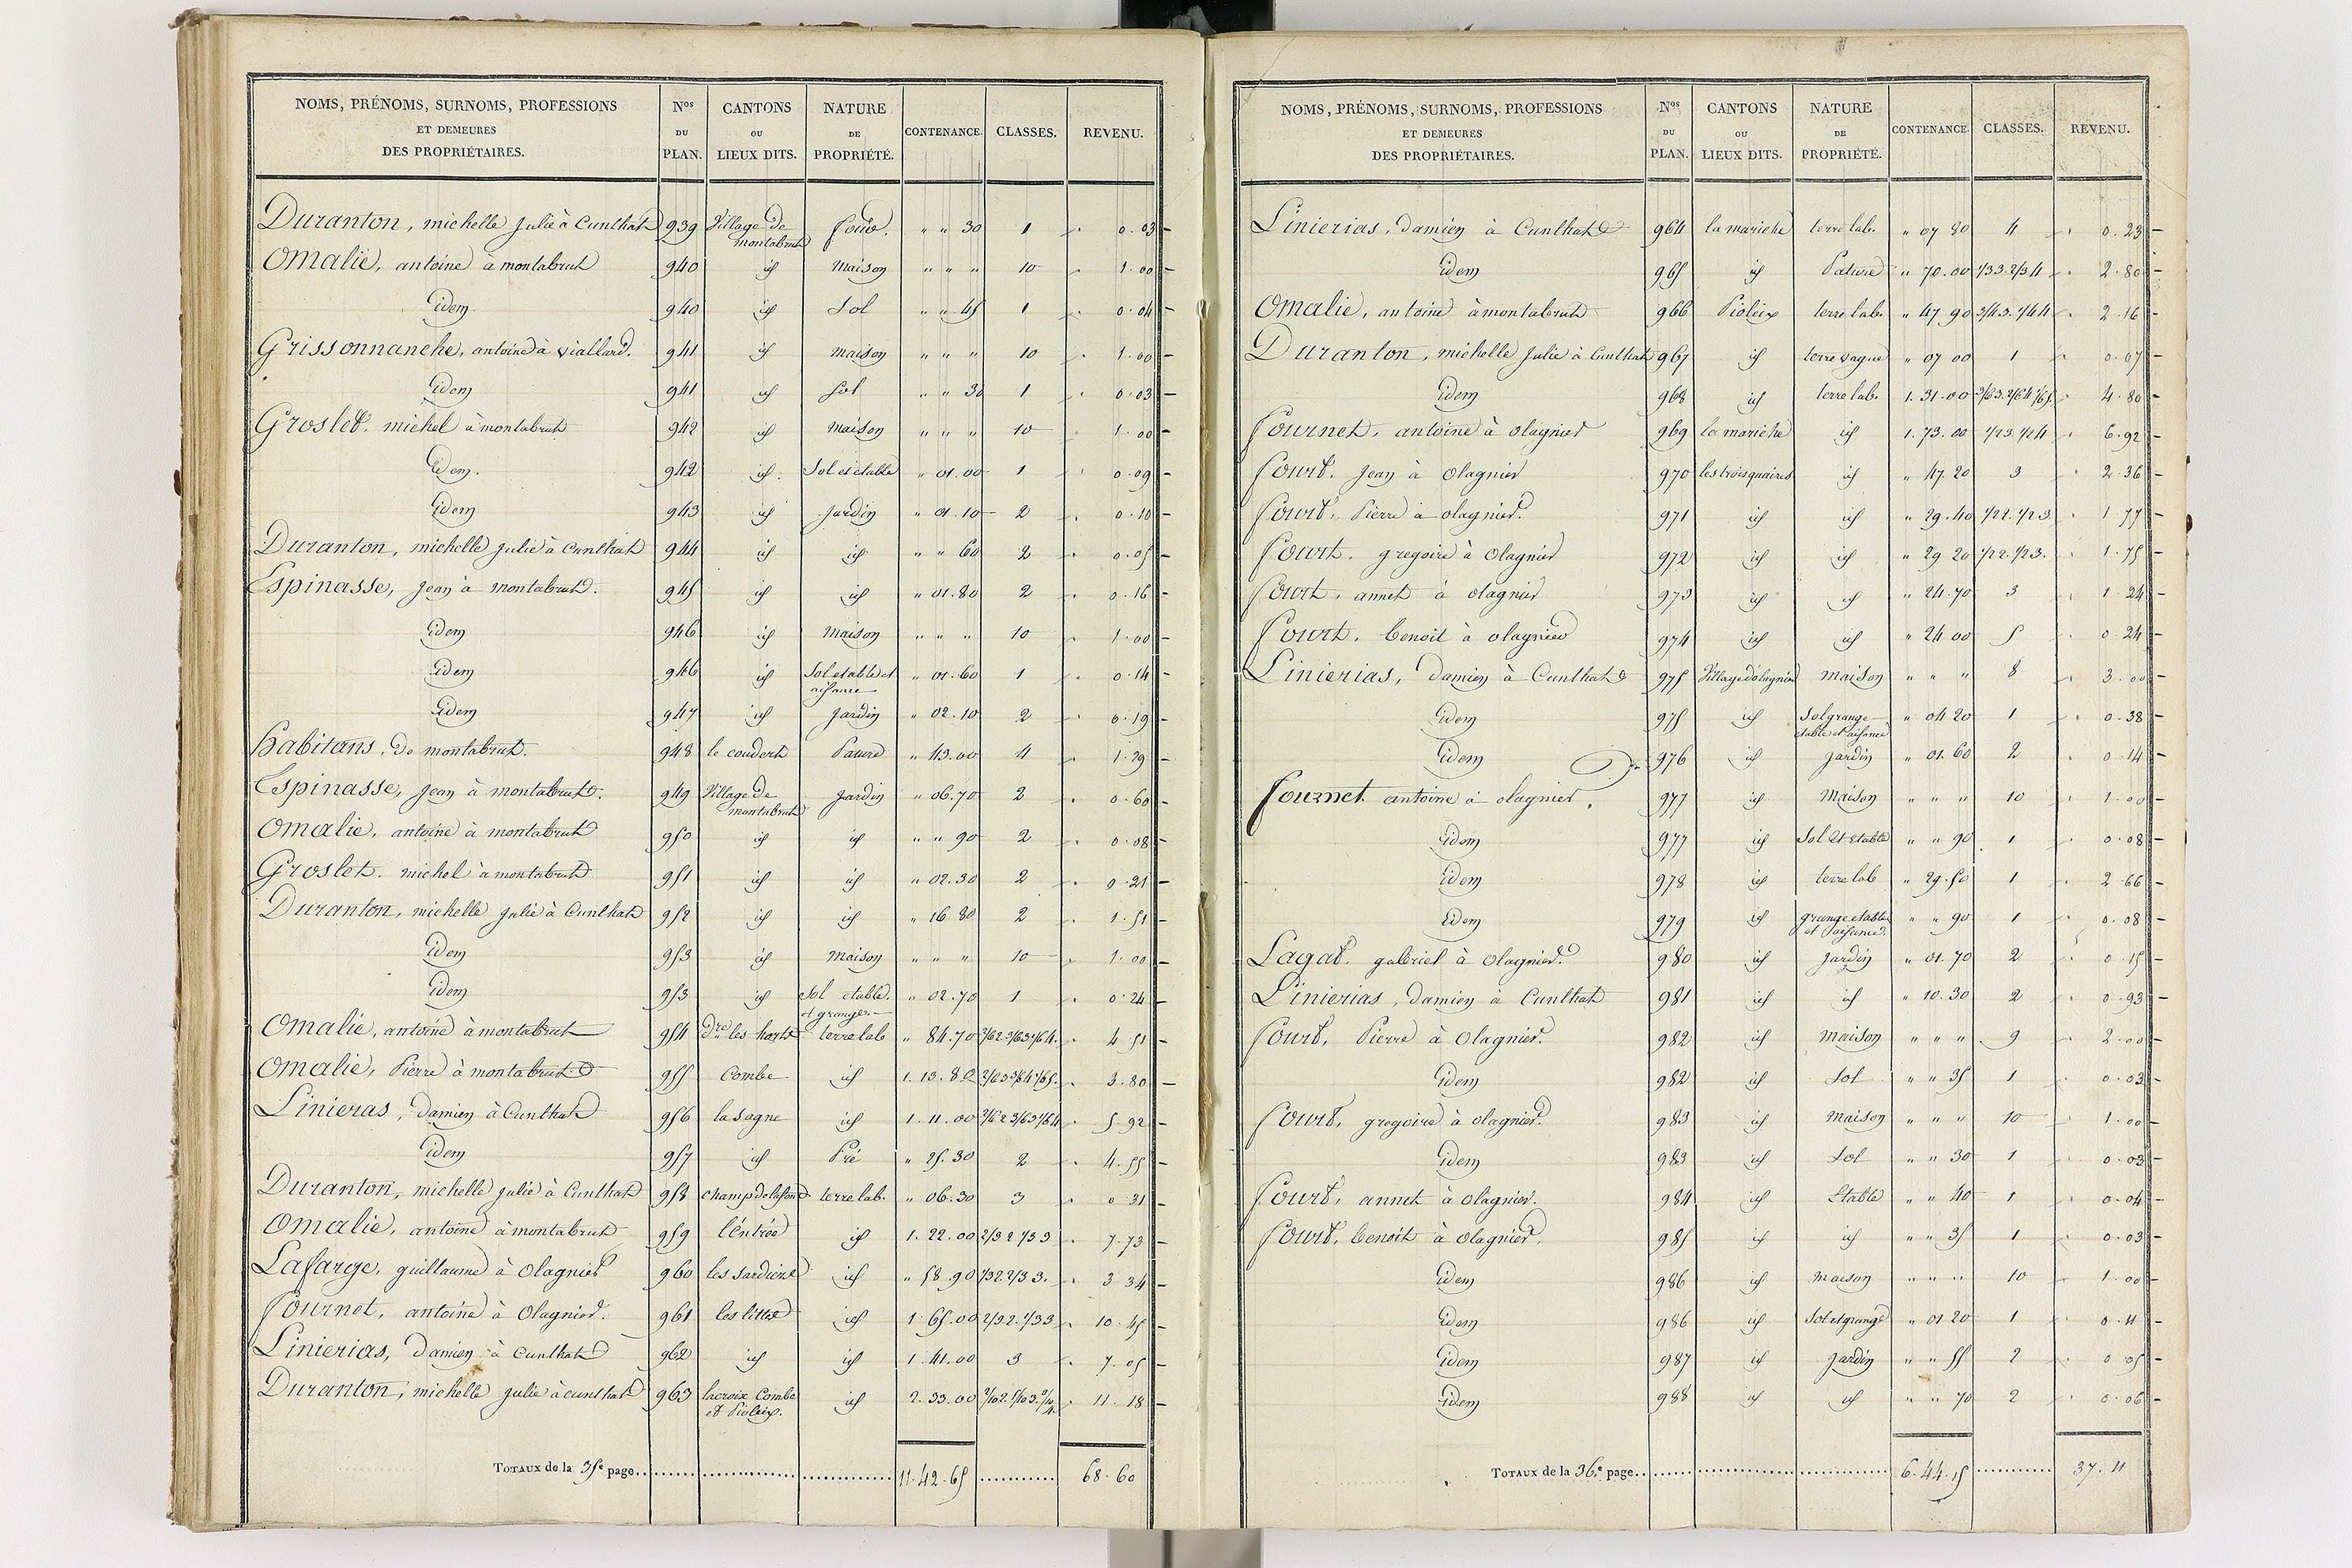 NOMS, PRÉNOMS, SURNOMS, PROFESSIONS ET DEMEURES DES PROPRIÉTAIRES. Nos DU PLAN. CANTONS OU LIEUX DITS. NATURE DE PROPRIÉTÉ. CONTENANCE. CLASSES. REVENU.
Duranton, michelle Julie à Cunlhat 939 Village de montabrut four. " " 30 1 0.03
Omalie, antoine à montabrut 940 id Maison " " " 10 1.00
Idem 940 id Sol " " 45 1 0.04
Grissonnanche, antoine à Viallard. 941 id maison " " " 10 1.00
Idem 941 id Sol " " 30 1 0.03
Groslet. michel à montabrut 942 id Maison " " " 10 1.00
Idem. 942 id. Sol et étable " 01.00 1 0.09
Idem 943 id Jardin " 01.10 2 0.10
Duranton, michelle Julie à Cunlhat 944 id id " " 60 2 0.05
Espinasse, Jean à montabrut. 945 id id " 01.80 2 0.16
Idem 946 id Maison " " " 10 1.00
Idem 946 id Sol etable et aisance " 01.60 1 0.14
Idem 947 id Jardin " 02.10 2 0.19
habitans, de montabrut. 948 le coudert Pature " 43.00 4 1.29
Espinasse, Jean à montabrut. 949 Village de montabrut Jardin " 06.70 2 0.60
Omalie, antoine à montabrut 950 id id " " 90 2 0.08
Groslet. michel à montabrut 951 id id " 02.30 2 0.21
Duranton, michelle Julie à Cunlhat 952 id id " 16 80 2 1.51
Idem 953 id Maison " " " 10 1.00
Idem 953 id Sol etable. et grange. " 02.70 1 0.24
Omalie, antoine à montabrut 954 les horts terre lab " 84.70 2/6 2. 3/6 3 1/6 4. 4 51
Omalie, Pierre à montabrut 955 Combe id 1.13.80 2/6 3 3/6 4 1/6 5. 3.80
Linieras, Damien à Cunlhat 956 la sagne id 1.11.00 2/6 2 3/6 3 1/6 4 5 92
Idem 957 id Pré " 25.30 2 4.55
Duranton, michelle Julie à Cunlhat 958 champ de la fond terre lab. " 06.30 3 0 31
Omalie, antoine à montabrut 959 l'éntrée id 1.22.00 2/3 2 1/3 3 7.73
Lafarge, guillaume à Olagnier 960 id " 58.90 1/3 2. 2/3 3. 3 34
fournet, antoine à Olagnier. 961 id 1 65.00 2/3 2. 1/3 3 10.45
Linierias, Damien à Cunlhat 962 id id 1.41.00 3 7.05
Duranton, michelle Julie à cunlhat 963 lacroix Combe et Pioleix. id 2.33.00 11.18
TOTAUX de la 35e page 11.42.65 68.60
NOMS, PRÉNOMS, SURNOMS, PROFESSIONS ET DEMEURES DES PROPRIÉTAIRES. Nos DU PLAN. CANTONS OU LIEUX DITS. NATURE DE PROPRIÉTÉ. CONTENANCE. CLASSES. REVENU.
Linierias, Damien à Cunlhat 964 la mariche terre lab. " 07 80 4 0.23
Idem 965 id Pature " 70.00 1/3 3. 2/3 4 2.80
Omalie, antoine à montabrut 966 Pioleix terre lab. " 47 90 3/4 3. 1/4 4 2.16
Duranton, michelle Julie à Cunlhat 967 id terre vague " 07 00 1 0.07
Idem 968 id terre lab. 1.31.00 3/6 3. 2/6 4 1/6 5. 4.80
fournet, antoine à olagnier 969 la mariche id 1.73.00 1/2 3. 1/2 4 6.92
fourt, Jean à Olagnier 970 les trois quaires id " 47.20 3 2.36
fourt, Pierre à olagnier. 971 id id " 29.40 1/2 2. 1/2 3 1 77
fourt. gregoire à Olagnier 972 id id " 29 20 1/2 2. 1/2 3. 1.75
fourt, annet à olagnier 973 id id " 24.70 3 1 24
fourt, benoit à olagnier 974 id id " 24 00 5 0.24
Linierias, Damien à Cunlhat 975 Village d'olagnier maison " " " 8 3.00
Idem 975 id Sol grange etable et aisance " 04 20 1 0.38
Idem 976 id Jardin " 01.60 2 0.14
fournet. antoine à olagnier. 977 id Maison " " " 10 1.00
Idem 977 id Sol et Etable " " 90 1 0.08
Idem 978 id terre lab " 29.50 1 2 66
Idem 979 id grange etable et aisance " " 90 1 0.08
Lagat. gabriel à Olagnier. 980 id Jardin " 01.70 2 0.15
Linierias, Damien à Cunlhat 981 id id " 10.30 2 0.93
fourt, Pierre à Olagnier. 982 id maison " " " 9 2.00
Idem 982 id Sol " " 35 1 0.03
fourt, gregoire à olagnier. 983 id Maison " " " 10 1.00
Idem 983 id Sol " " 30 1 0.03
fourt, annet à olagnier. 984 id Etable " " 40 1 0.04
fourt, benoit à olagnier. 985 id id " " 35 1 0.03
Idem 986 id maison " " " 10 1.00
Idem 986 id Sol et grange " 01 20 1 0.11
Idem 987 id Jardin " " 55 2 0 05
Idem 988 id id " " 70 2 0.06
TOTAUX de la 36.e page 6.44.15 37.11